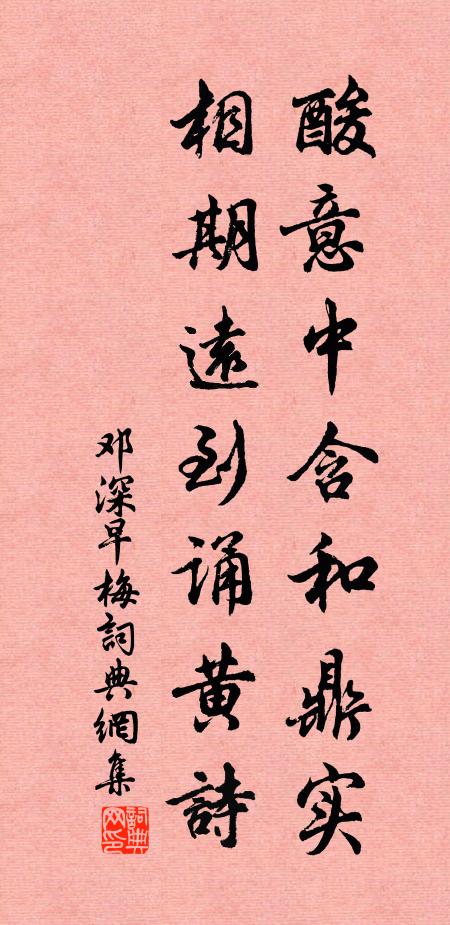 酸意中含和鼎实
相期遠到诵黄詩
邓深早梅詞典網集
詞典网印